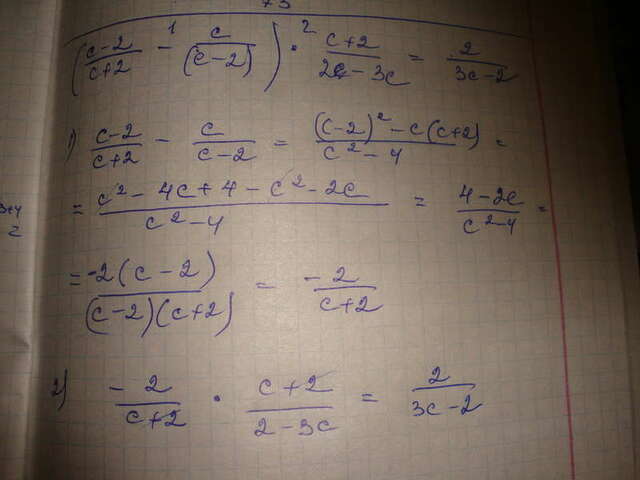 +3
((c-2)/(c+2) -¹ c/(c-2)) ·² (c+2)/(2-3c) = 2/(3c-2)
1) (c-2)/(c+2) - c/(c-2) = ((c-2)² - c(c+2))/(c²-4) =
= (c² - 4c + 4 - c² - 2c)/(c²-4) = (4-2c)/(c²-4) =
= -2(c-2)/((c-2)(c+2)) = -2/(c+2)
2) -2/(c+2) · (c+2)/(2-3c) = 2/(3c-2)